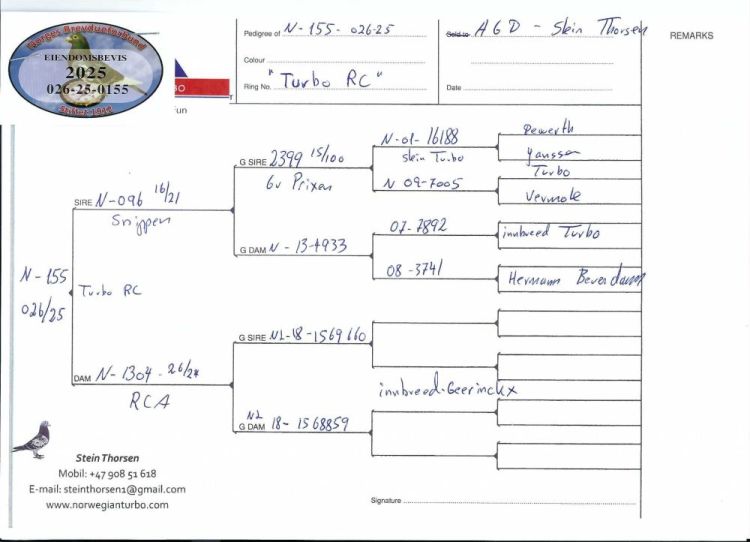 Norges Brevduerforbund
EIENDOMSBEVIS
2025
026-25-0155
Stiftet 1912
Pedigree of N-155-026-25
Colour
Ring No. "Turbo RC"
Sold to AGD - Stein Thorsen
Date
REMARKS
SIRE N-096 16/21
Snippen
G SIRE 2399 15/100
Gv Prixen
N-01-16188
Stein Turbo
Dewerth
Janssen
Turbo
N 09-7005
Vermote
G DAM N-13-4933
07-7892
innbreed Turbo
08-3741
Hermann Beverdam
N-155
026/25
Turbo RC
DAM N-1304-26/24
RCA
G SIRE NL-18-1569160
innbreed-Geerinckx
G DAM NL 18-1568859
Stein Thorsen
Mobil: +47 908 51 618
E-mail: steinthorsen1@gmail.com
www.norwegianturbo.com
Signature